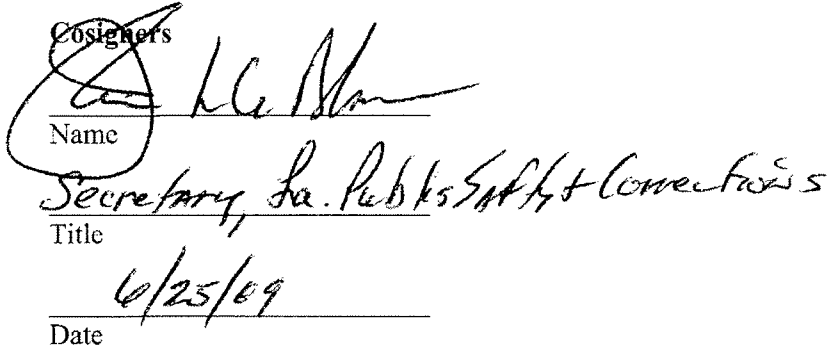 Cosigners
Name
Secretary, La. Public Safety & Corrections
Title
6/25/09
Date